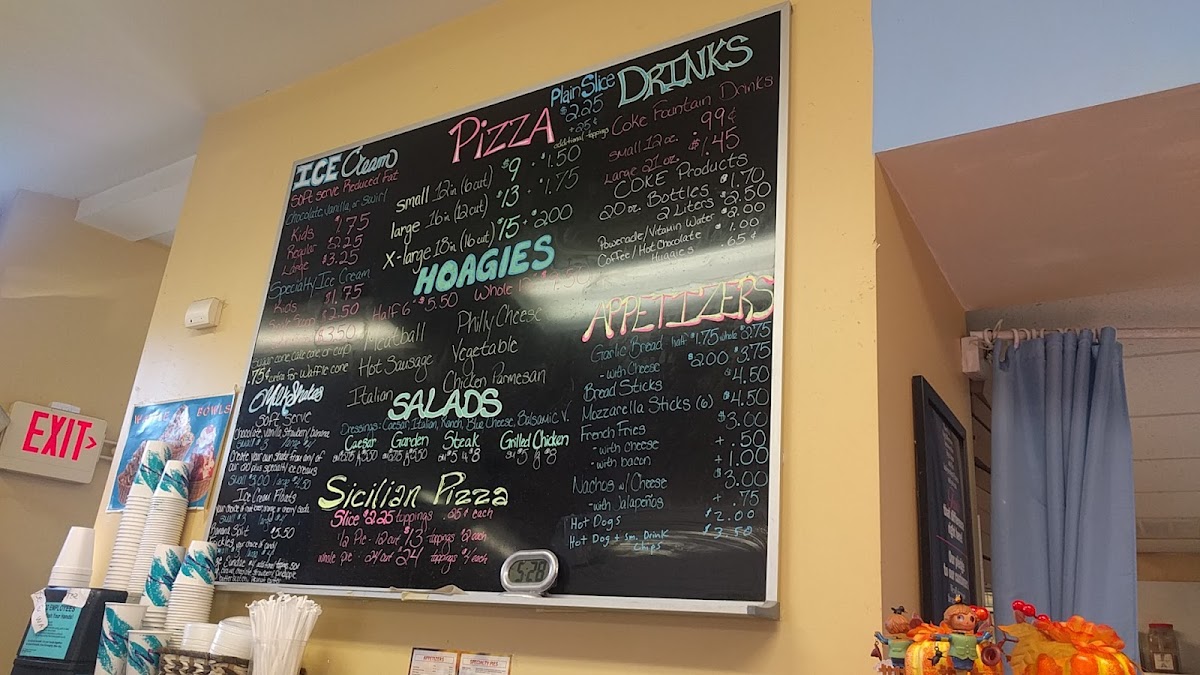 ICE Cream
Soft Serve Reduced Fat
chocolate, vanilla, or swirl
Kids $1.75
Regular $2.25
Large $3.25
Specialty Ice Cream
Kids $1.75
$2.50
$3.50
sugar cone cake cone or cup
.75¢ extra for waffle cone
Milk Shakes
Soft Serve
Chocolate, vanilla, strawberry, banana
Create your own shake from any of
our old plus specialty ice creams
Small $3.00 large $4.50
Ice Cream Floats
Banana Split $5.50
PIZZA
Plain Slice
$2.25
+25¢
additional toppings
small 12in (6 cut) $9 · $1.50
large 16in (12 cut) $13 · $1.75
x-large 18in (16 cut) $15 · $2.00
HOAGIES
Half 6" $5.50 Whole
Meatball Philly Cheese
Hot Sausage Vegetable
Italian Chicken Parmesan
SALADS
Dressings: Caesar, Italian, Ranch, Blue Cheese, Balsamic V.
Caesar Garden Steak Grilled Chicken
Sicilian Pizza
Slice $2.25 toppings .25¢ each
1/2 Pie · 12 cut $13 toppings $2 each
whole pie · 24 cut $24 toppings $4 each
DRINKS
Coke Fountain Drinks
small 12oz. .99¢
Large 21oz. $1.45
COKE Products
20 oz. Bottles $1.70
2 Liters $2.50
Powerade/Vitamin Water $2.00
Coffee/Hot Chocolate $1.00
Huggies .65¢
APPETIZERS
Garlic Bread half $1.75 whole $2.75
- with Cheese $2.00 $3.75
Bread Sticks $4.50
Mozzarella Sticks (6) $4.50
French Fries $3.00
- with cheese + .50
- with bacon + 1.00
Nachos w/ Cheese $3.00
- with Jalapeños + .75
Hot Dogs $2.00
Hot Dog + Sm. Drink $3.50
Chips
5:28
EXIT
BOWLS
EMPLOYEES
APPETIZERS
SPECIALTY PIES